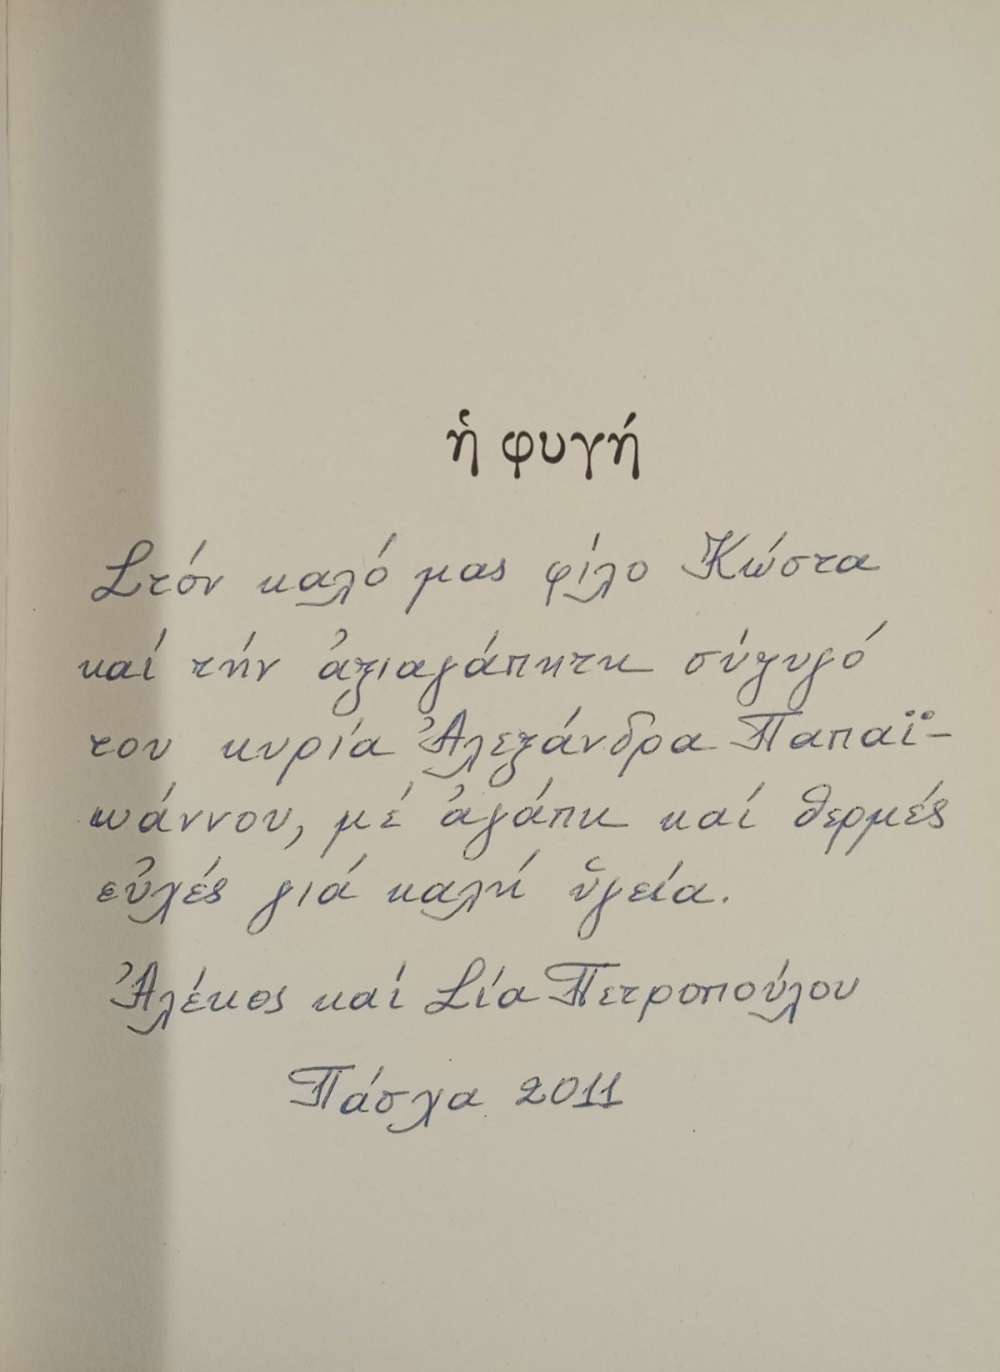 ἡ φυγή
Στόν καλό μας φίλο Κώστα
καί τήν ἀξιαγάπητη σύζυγό
του κυρία Ἀλεξάνδρα Παπαϊ-
ωάννου, μέ ἀγάπη καί θερμές
εὐχές γιά καλή ὑγεία.
Ἀλέκος καί Λία Πετροπούλου
Πάσχα 2011